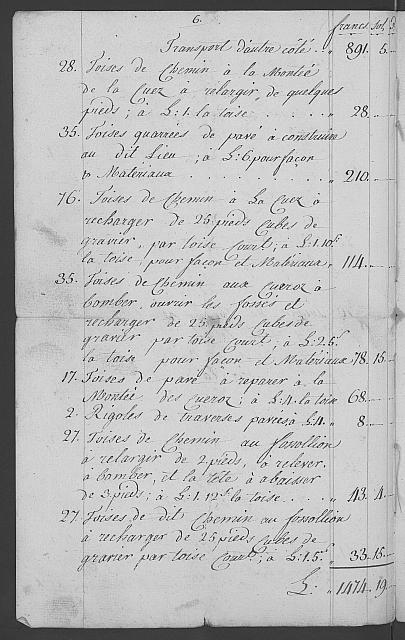 6.
francs sol d
Transport d'autre côté . . " 891. 5. —
28. Toises de Chemin à la Montée
de la Cuez à relargir, de quelques
pieds; à L: 1. la toise . . . . . " 28. — —
35. Toises quarrées de pavé à construire
au dit Lieu; à L: 6. pour façon
& Matériaux . . . . . . . . " 210. — —
76. Toises de Chemin à La Cuez à
recharger de 25 pieds Cubes de
gravier, par toise Court; à L: 1. 10.s
la toise, pour façon et Matériaux " 114. — —
35. Toises de Chemin aux Cueroz à
bomber, ouvrir les fossés et
recharger de 25 pieds Cubes de
gravier par toise Court; à L: 2. 5.s
la toise pour façon et Matériaux 78. 15. —
17. Toises de pavé à reparer à la
Montée des Cueroz; à L: 4. la toise 68. — —
2. Rigoles de traverses pavées à L: 4. " 8. — —
27. Toises de Chemin au fossollion
à relargir de 2 pieds, à relever,
à bomber, et la tête à abaisser
de 3 pieds; à L: 1. 12.s la toise . . . . " 43. 4. —
27. Toises de dit Chemin au fossollion
à recharger de 25 pieds Cubes de
gravier par toise Court; à L: 1. 5.s " 33. 15. —
L: " 1474. 19.